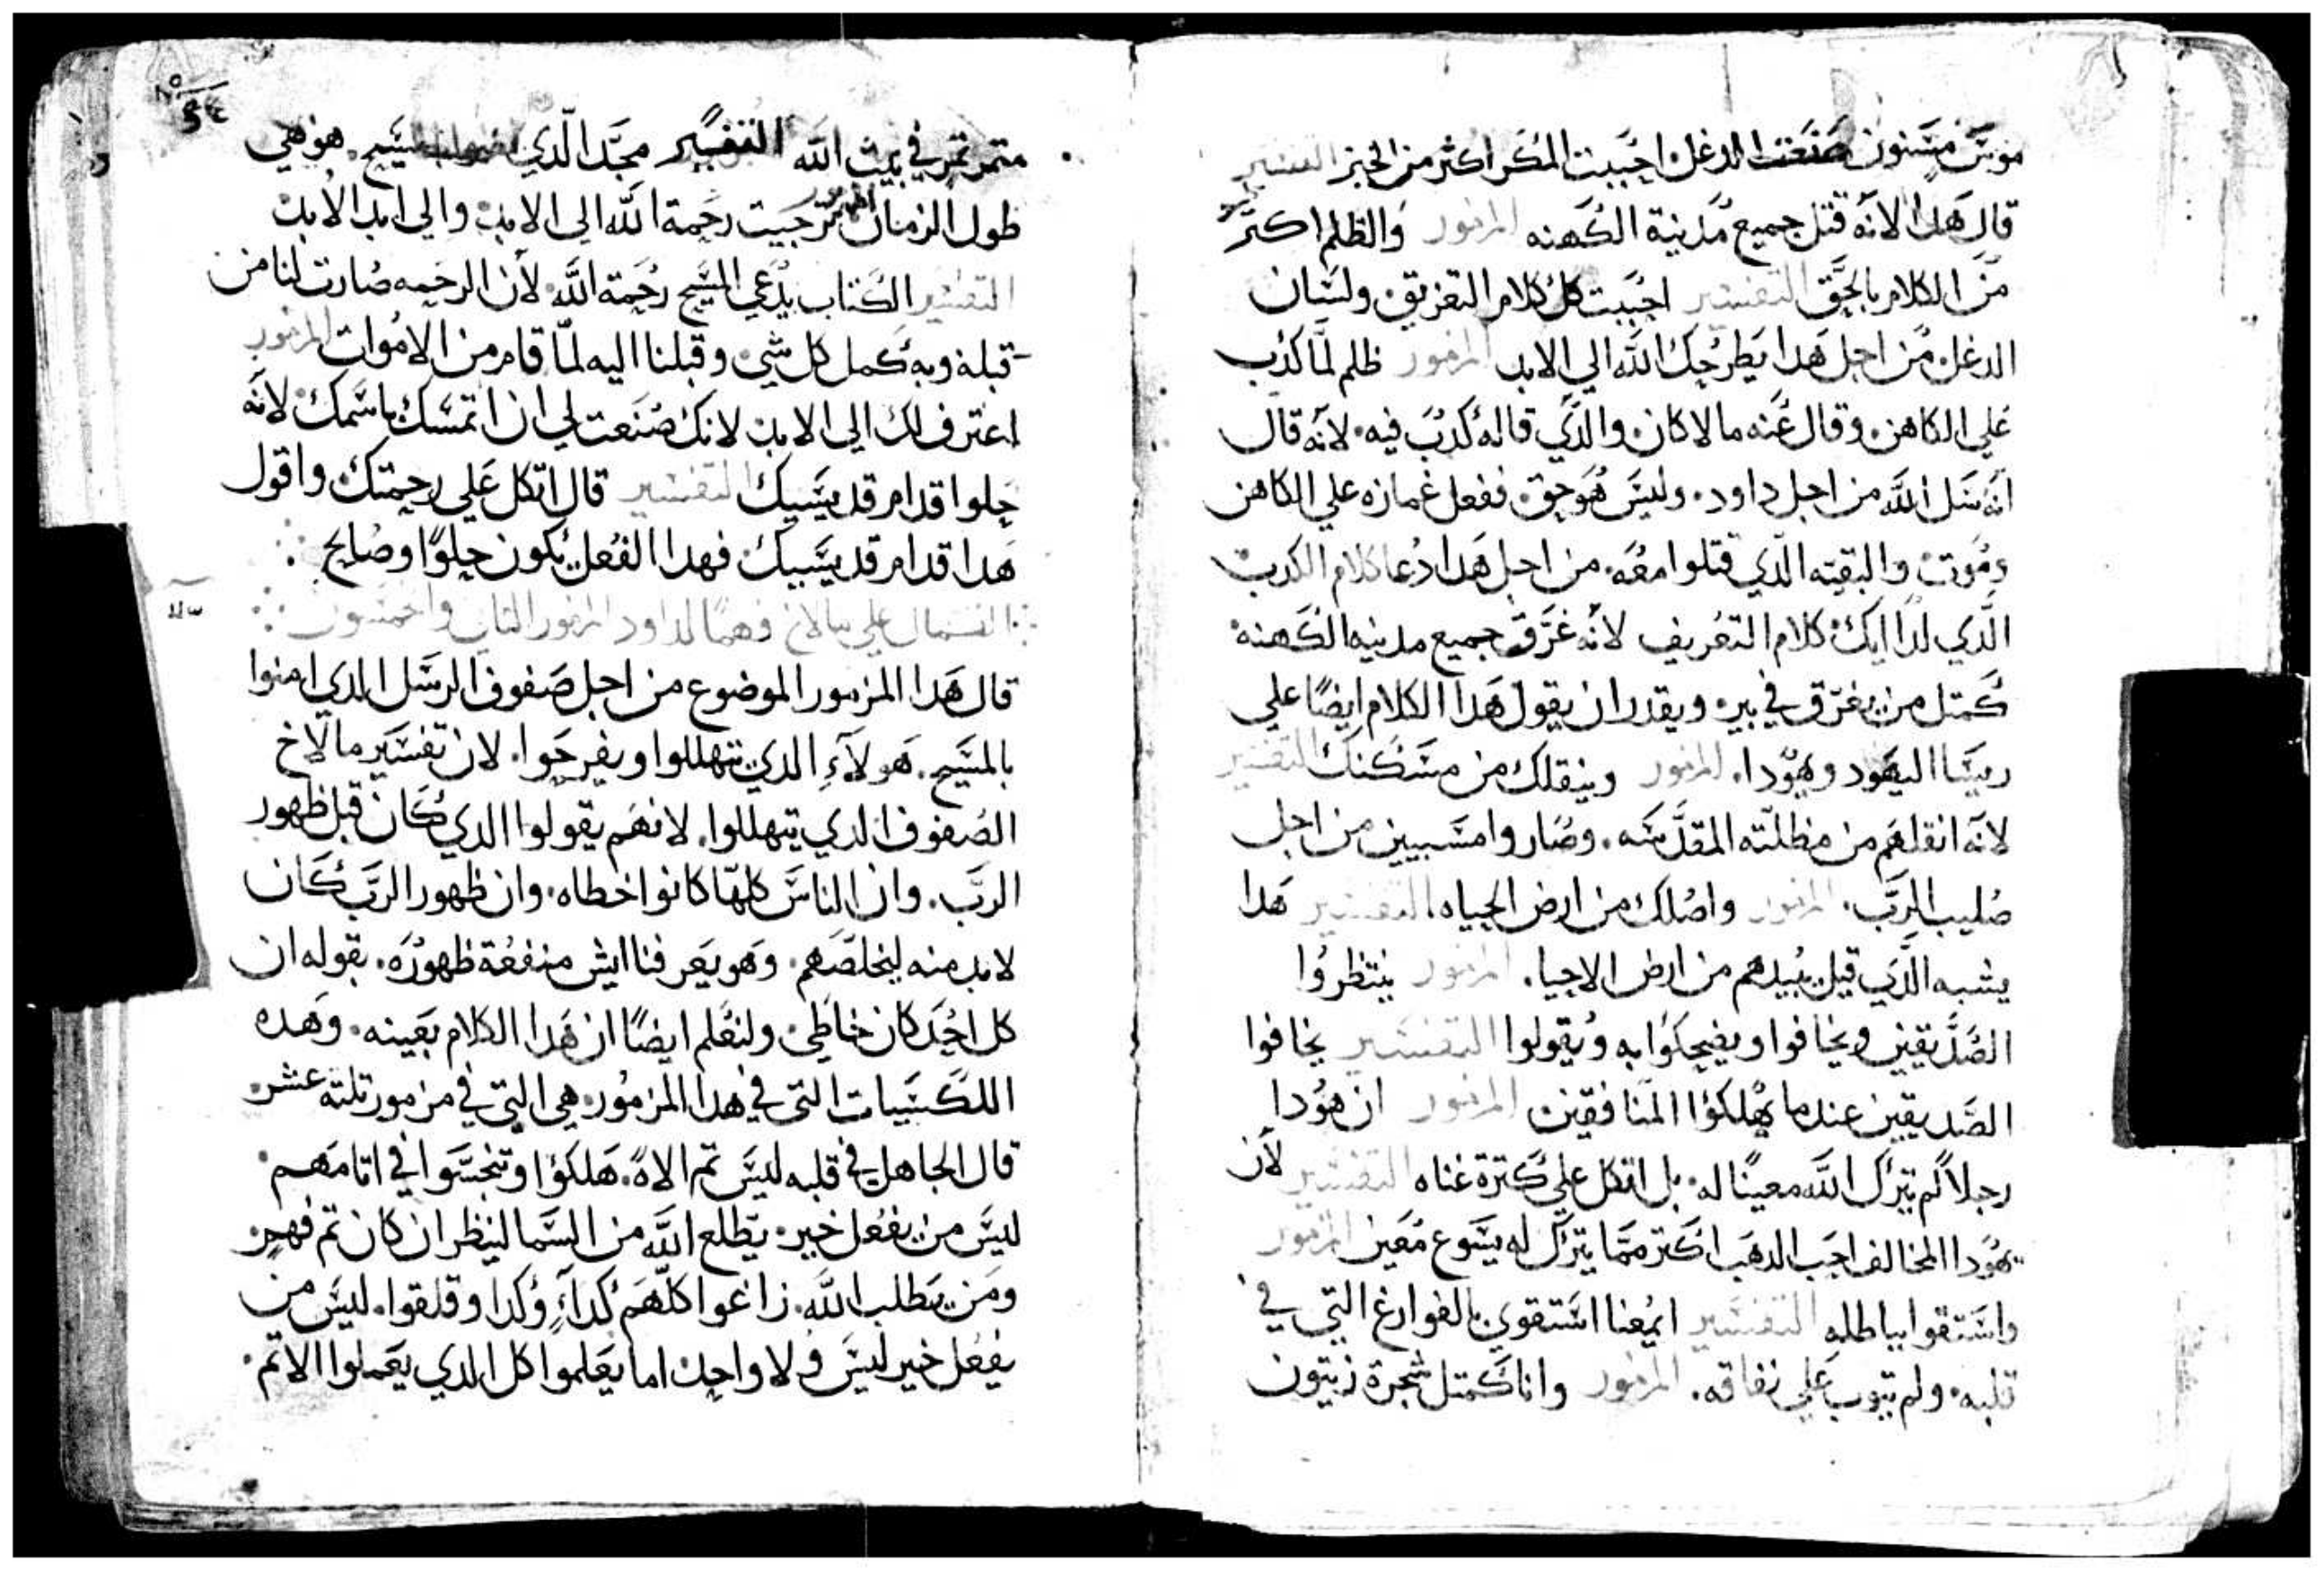 موس مسنون صنعت الدغل احببت المكر اكثر من الخير التفسير
قال هدا لانه قتل جميع مدينة الكهنه المزمور والظلم اكتر
من الكلام بالحق التفسير احببت كل كلام التغريق ولسان
الدغل من اجل هدا يطرحك الله الي الابد المزمور ظلم لما كدب
علي الكاهن وقال عنه ما لا كان والدي قاله كدب فيه لانه قال
انه سل الله من اجل داود وليس هو حق ففعل غمازه علي الكاهن
وموت والبقيه الدي قتلوا معه من اجل هدا دعا كلام الكدب
الدي لدا ايك كلام التغريق لانه غرق جميع مدينه الكهنه
كمتل من يغرق في بير ويقدر ان يقول هدا الكلام ايضا علي
ريسا اليهود ويهودا المزمور وينقلك من مسكنك التفسير
لانه انقلهم من مظلته المقدسه وصاروا مسبيين من اجل
صليب الرب المزمور واصلك من ارض الحياه التفسير هدا
يشبه الدي قيل يبيدهم من ارض الاحيا المزمور ينتظروا
الصديقين ويخافوا ويضحكوا به ويقولوا التفسير يخافوا
الصديقين عندما يهلكوا المنافقين المزمور ان هودا
رجلا لم يترك الله معينا له بل اتكل علي كترة غناه التفسير لان
يهودا المخالف احب الدهب اكتر مما يترك له يسوع معين المزمور
واستقوا بباطله التفسير ايمعنا استقوي بالفوارغ التي في
قلبه ولم يتوب علي نفاقه المزمور وانا كمتل شجرة زيتون
متمر تمر في بيت الله التفسير مجد الدي المسيح هو هي
طول الزمان المزمور ترجيت رحمة الله الي الابد والي ابد الابد
التفسير الكتاب يدعي المسيح رحمة الله لان الرحمه صارت لنا من
قبله وبه كمل كل شي وقبلنا اليه لما قام من الاموات المزمور
اعترف لك الي الابد لانك صنعت لي ان اتمسك باسمك لانه
حلوا قدام قديسيك التفسير قال اتكل علي رحمتك واقول
هدا قدام قديسيك فهدا الفعل يكون حلوا وصالح
الفسمال علي مالاخ فهما لداود المزمور التاني والخمسون
قال هدا المزمور الموضوع من اجل صفوف الرسل الدي امنوا
بالمسيح هولاء الدي تهللوا ويفرحوا لان تفسير مالاخ
الصفوف الدي تهللوا لانهم يقولوا الدي كان قبل ظهور
الرب وان الناس كلها كانوا خطاه وان ظهور الرب كان
لا بد منه ليخلصهم وهو يعرفنا ايش منفعة ظهوره بقوله ان
كل احد كان خاطي ولنعلم ايضا ان هدا الكلام بعينه وهده
اللكسيات التي في هدا المزمور هي التي في مزمور تلته عشر
قال الجاهل في قلبه ليس تم الاه هلكوا وتنجسوا في اتامهم
ليس من يفعل خير يطلع الله من السما لينظر ان كان تم فهيم
ومن يطلب الله زاغوا كلهم كداء وكدا وقلقوا ليس من
يفعل خير ليس ولا واحد اما يعلموا كل الدي يعملوا الاتم